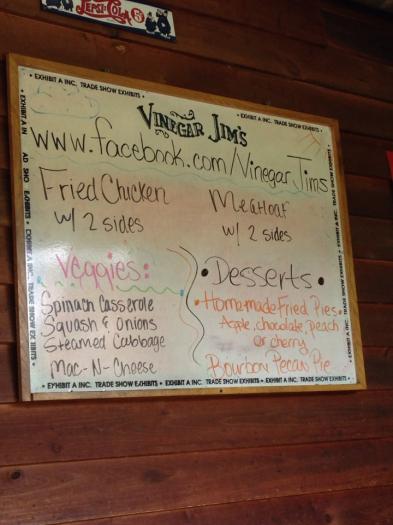 PEPSI-COLA 5
• EXHIBIT A INC. TRADE SHOW EXHIBITS •
• EXHIBIT A INC. TRADE SHOW EXHIBITS •
VINEGAR JIM'S
www.facebook.com/VinegarJims
Fried Chicken
w/ 2 sides
Meatloaf
w/ 2 sides
Veggies:
Spinach Casserole
Squash & Onions
Steamed Cabbage
Mac-N-Cheese
• Desserts •
• Homemade Fried Pies •
Apple, chocolate, peach
or cherry
Bourbon Pecan Pie
• EXHIBIT A INC. TRADE SHOW EXHIBITS • EXHIBIT A INC. TRADE SHOW EXHIBITS • EXHIBIT A INC. TRADE SHOW EXHIBITS •